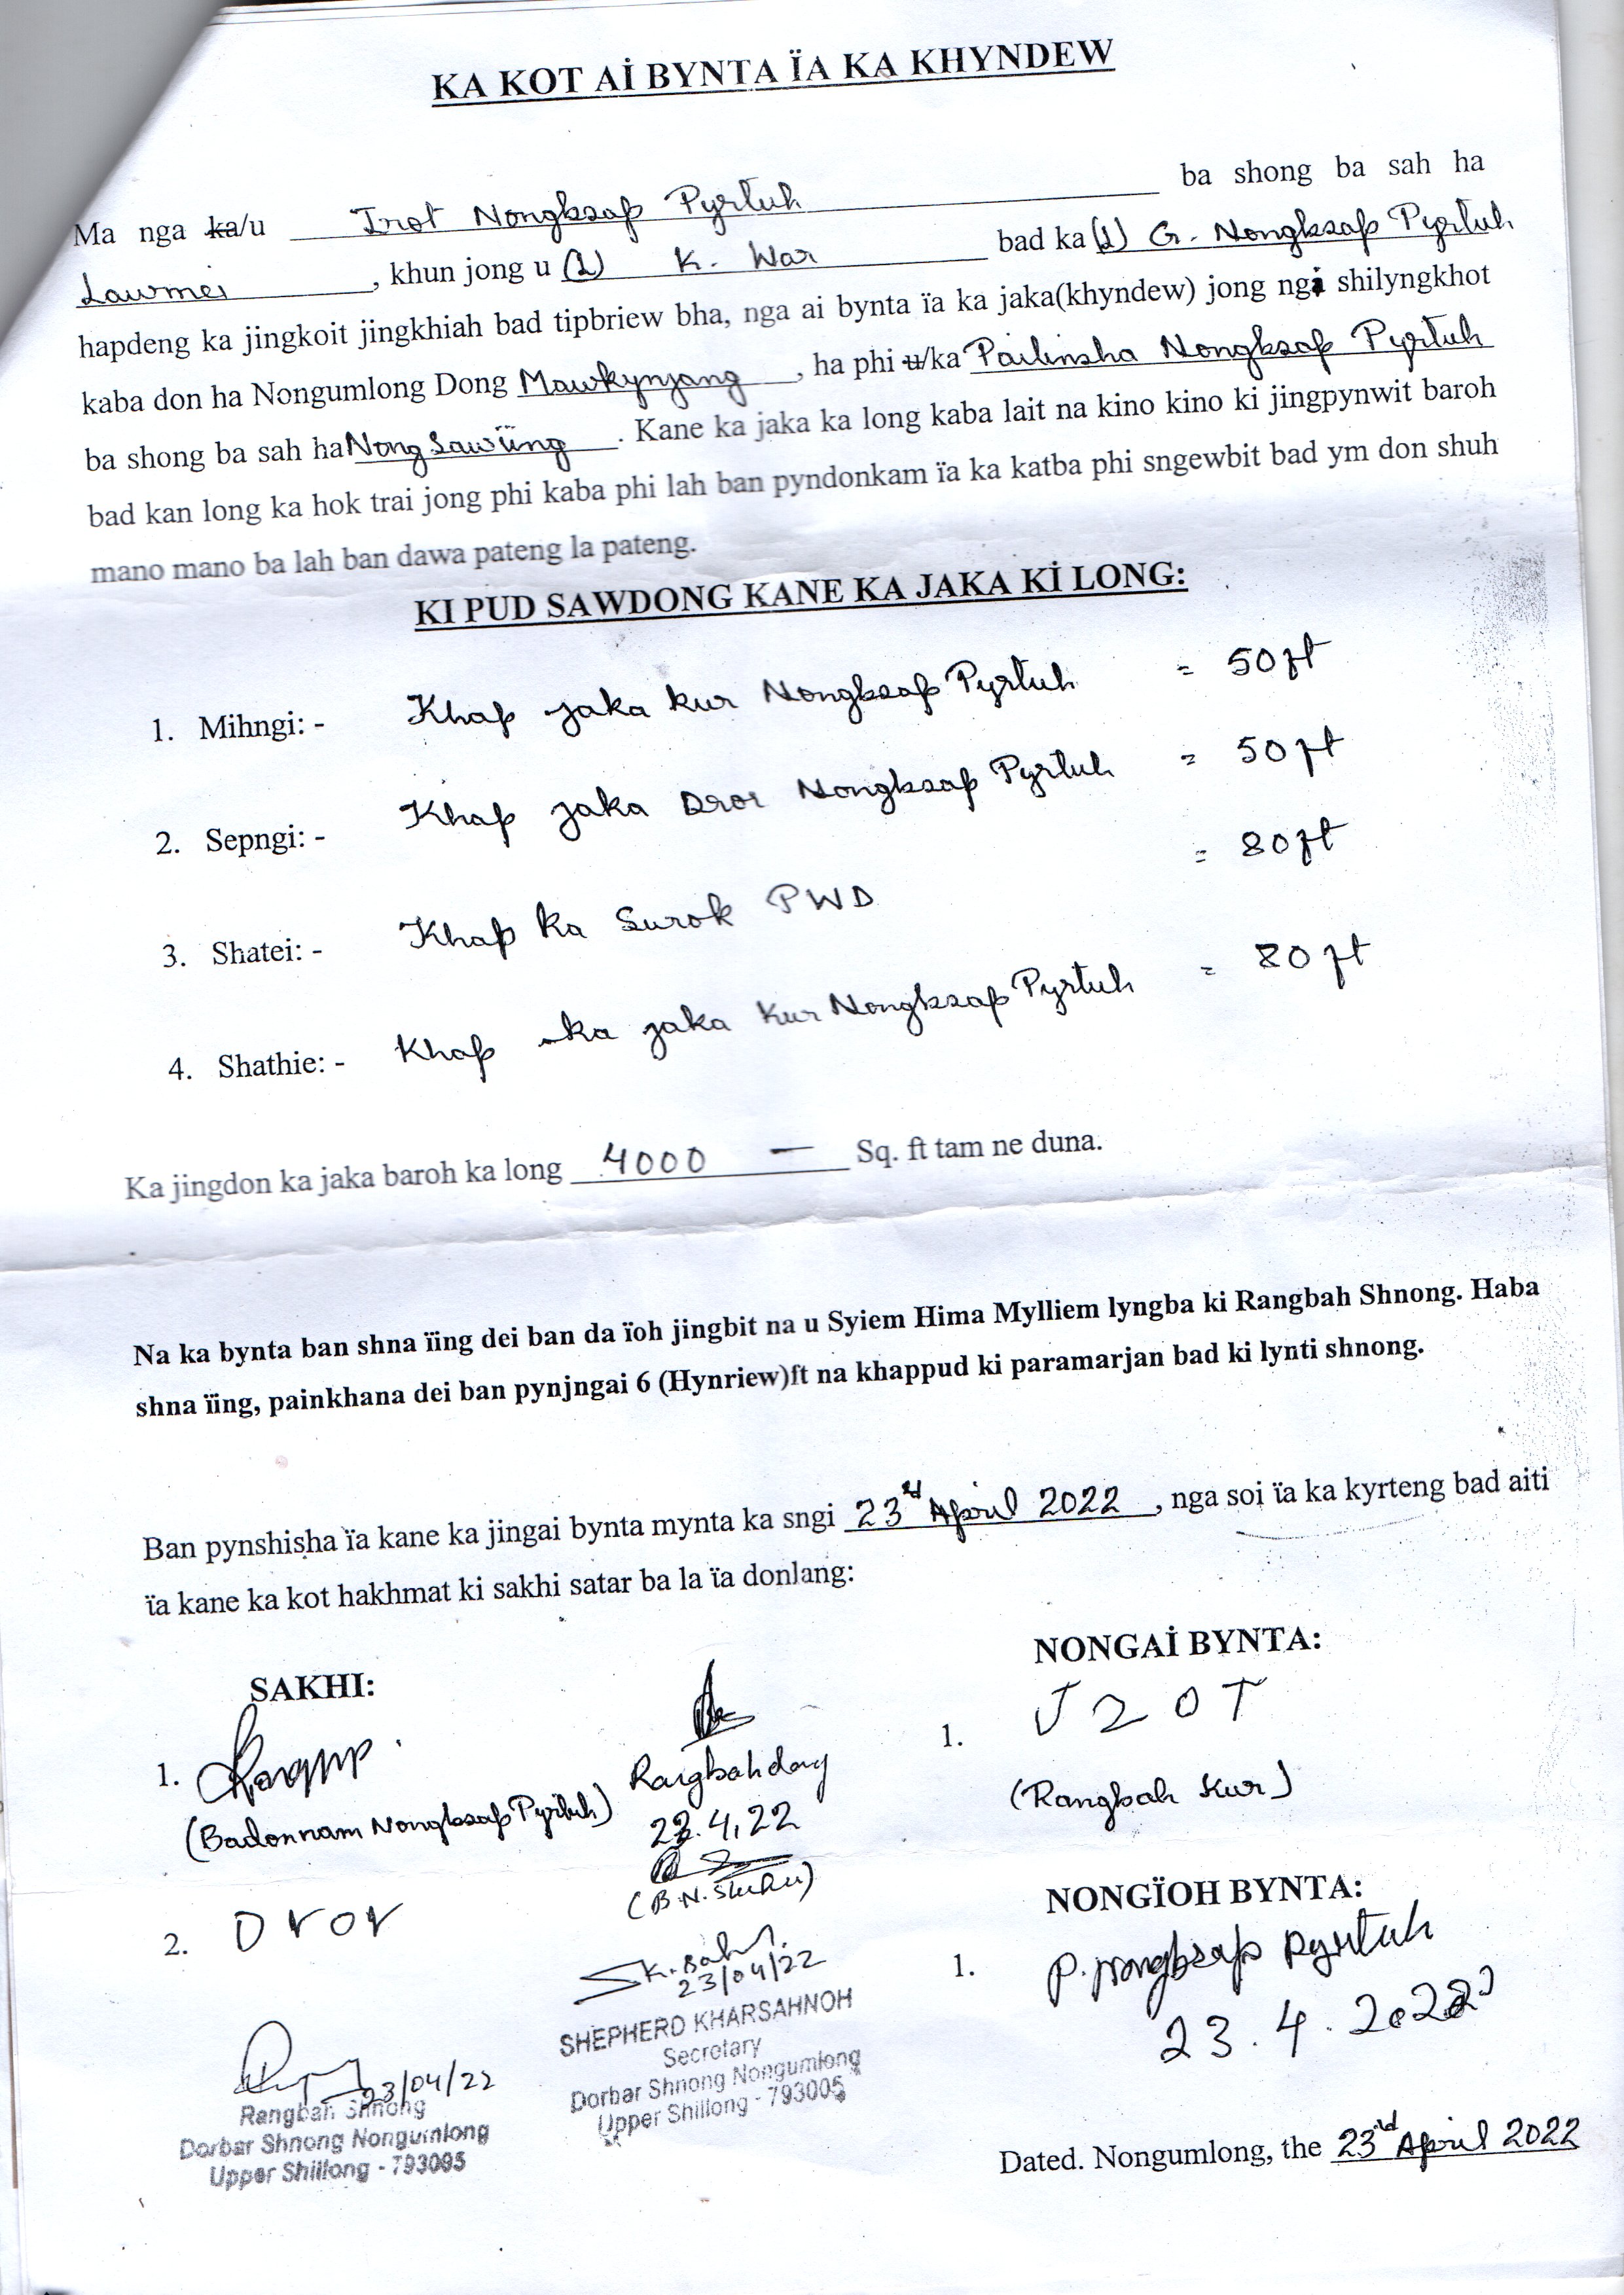 KA KOT Aİ BYNTA ÏA KA KHYNDEW
Ma nga ka/u Irot Nongksap Pyrtuh ba shong ba sah ha
Lawmei, khun jong u (L) K. War bad ka (L) G. Nongksap Pyrtuh
hapdeng ka jingkoit jingkhiah bad tipbriew bha, nga ai bynta ïa ka jaka(khyndew) jong nga shilyngkhot
kaba don ha Nongumlong Dong Mawkynjang, ha phi u/ka Pailinsha Nongksap Pyrtuh
ba shong ba sah ha Nongsawïing. Kane ka jaka ka long kaba lait na kino kino ki jingpynwit baroh
bad kan long ka hok trai jong phi kaba phi lah ban pyndonkam ïa ka katba phi sngewbit bad ym don shuh
mano mano ba lah ban dawa pateng la pateng.
KI PUD SAWDONG KANE KA JAKA Kİ LONG:
1. Mihngi: - Khap jaka kur Nongksap Pyrtuh = 50 ft
2. Sepngi: - Khap jaka Dror Nongksap Pyrtuh = 50 ft
3. Shatei: - Khap ka Surok PWD = 80 ft
4. Shathie: - Khap ka jaka kur Nongksap Pyrtuh = 80 ft
Ka jingdon ka jaka baroh ka long 4000 — Sq. ft tam ne duna.
Na ka bynta ban shna ïing dei ban da ïoh jingbit na u Syiem Hima Mylliem lyngba ki Rangbah Shnong. Haba
shna ïing, painkhana dei ban pynjngai 6 (Hynriew)ft na khappud ki paramarjan bad ki lynti shnong.
Ban pynshisha ïa kane ka jingai bynta mynta ka sngi 23rd April 2022, nga soi ïa ka kyrteng bad aiti
ïa kane ka kot hakhmat ki sakhi satar ba la ïa donlang:
SAKHI:
NONGAİ BYNTA:
1.
(Badonnam Nongksap Pyrtuh)
Rangbah dong
23.4.22
1. J20T
(Rangbah Kur)
2. Dror
NONGÏOH BYNTA:
1. P. Nongksap Pyrtuh
23.4.2022
23/04/22
SHEPHERD KHARSAHNOH
Secretary
Dorbar Shnong Nongumlong
Upper Shillong - 793005
23/04/22
Rangbah Shnong
Dorbar Shnong Nongumlong
Upper Shillong - 793005
Dated. Nongumlong, the 23rd April 2022